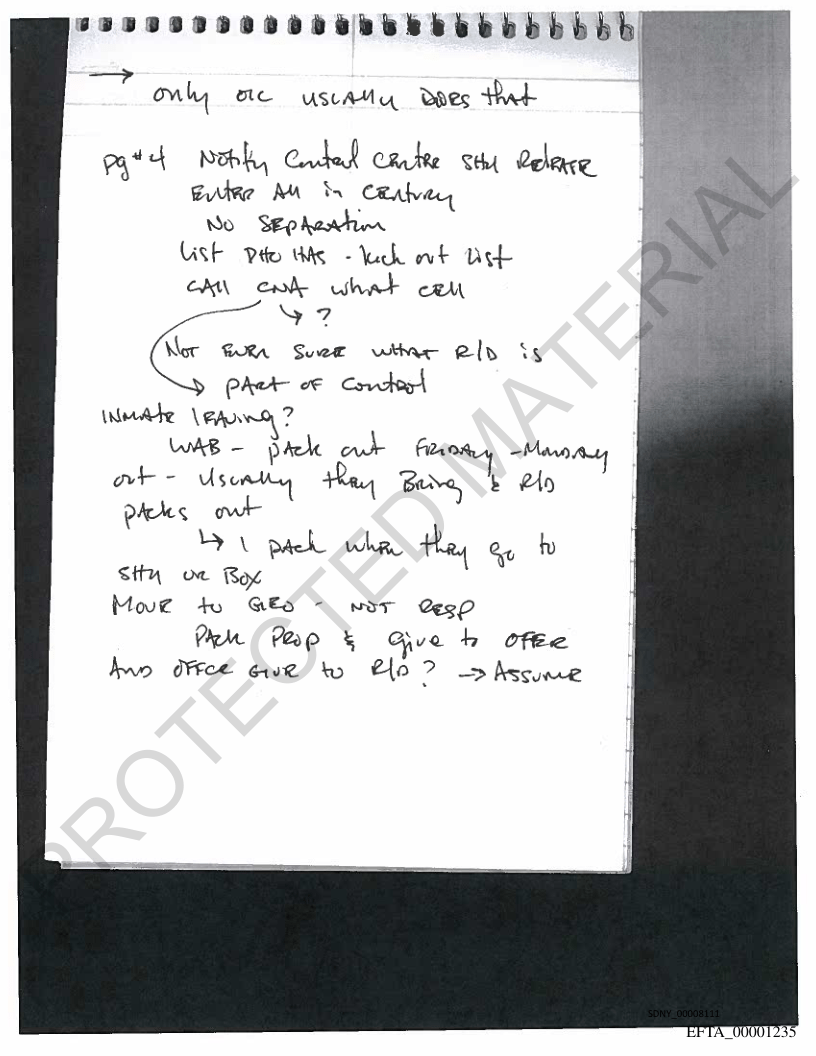 →
only OIC USUALLY DOES that
Pg #4 Notify Control CENTRE SHU RELEASE
ENTER All in CENtury
NO SEPARAtion
List DHO HAS - kick out List
CAll CNA what CEll
↳ ?
Not EVEN SURE WHAT R/D is
→ PARt OF Control
INMAte LEAVing?
WAB - pAck out FRIDAY - MONDAY
out - USUALLY they Bring & R/D
pAcks out
↳ I pAck when they go to
SHU OR Box
MOVE to GEO - NOT RESP
PAck PROP & give to OFFER
AND OFFCE GIVE to R/D? → ASSUME
PROTECTED MATERIAL
SDNY_00008111
EFTA_00001235